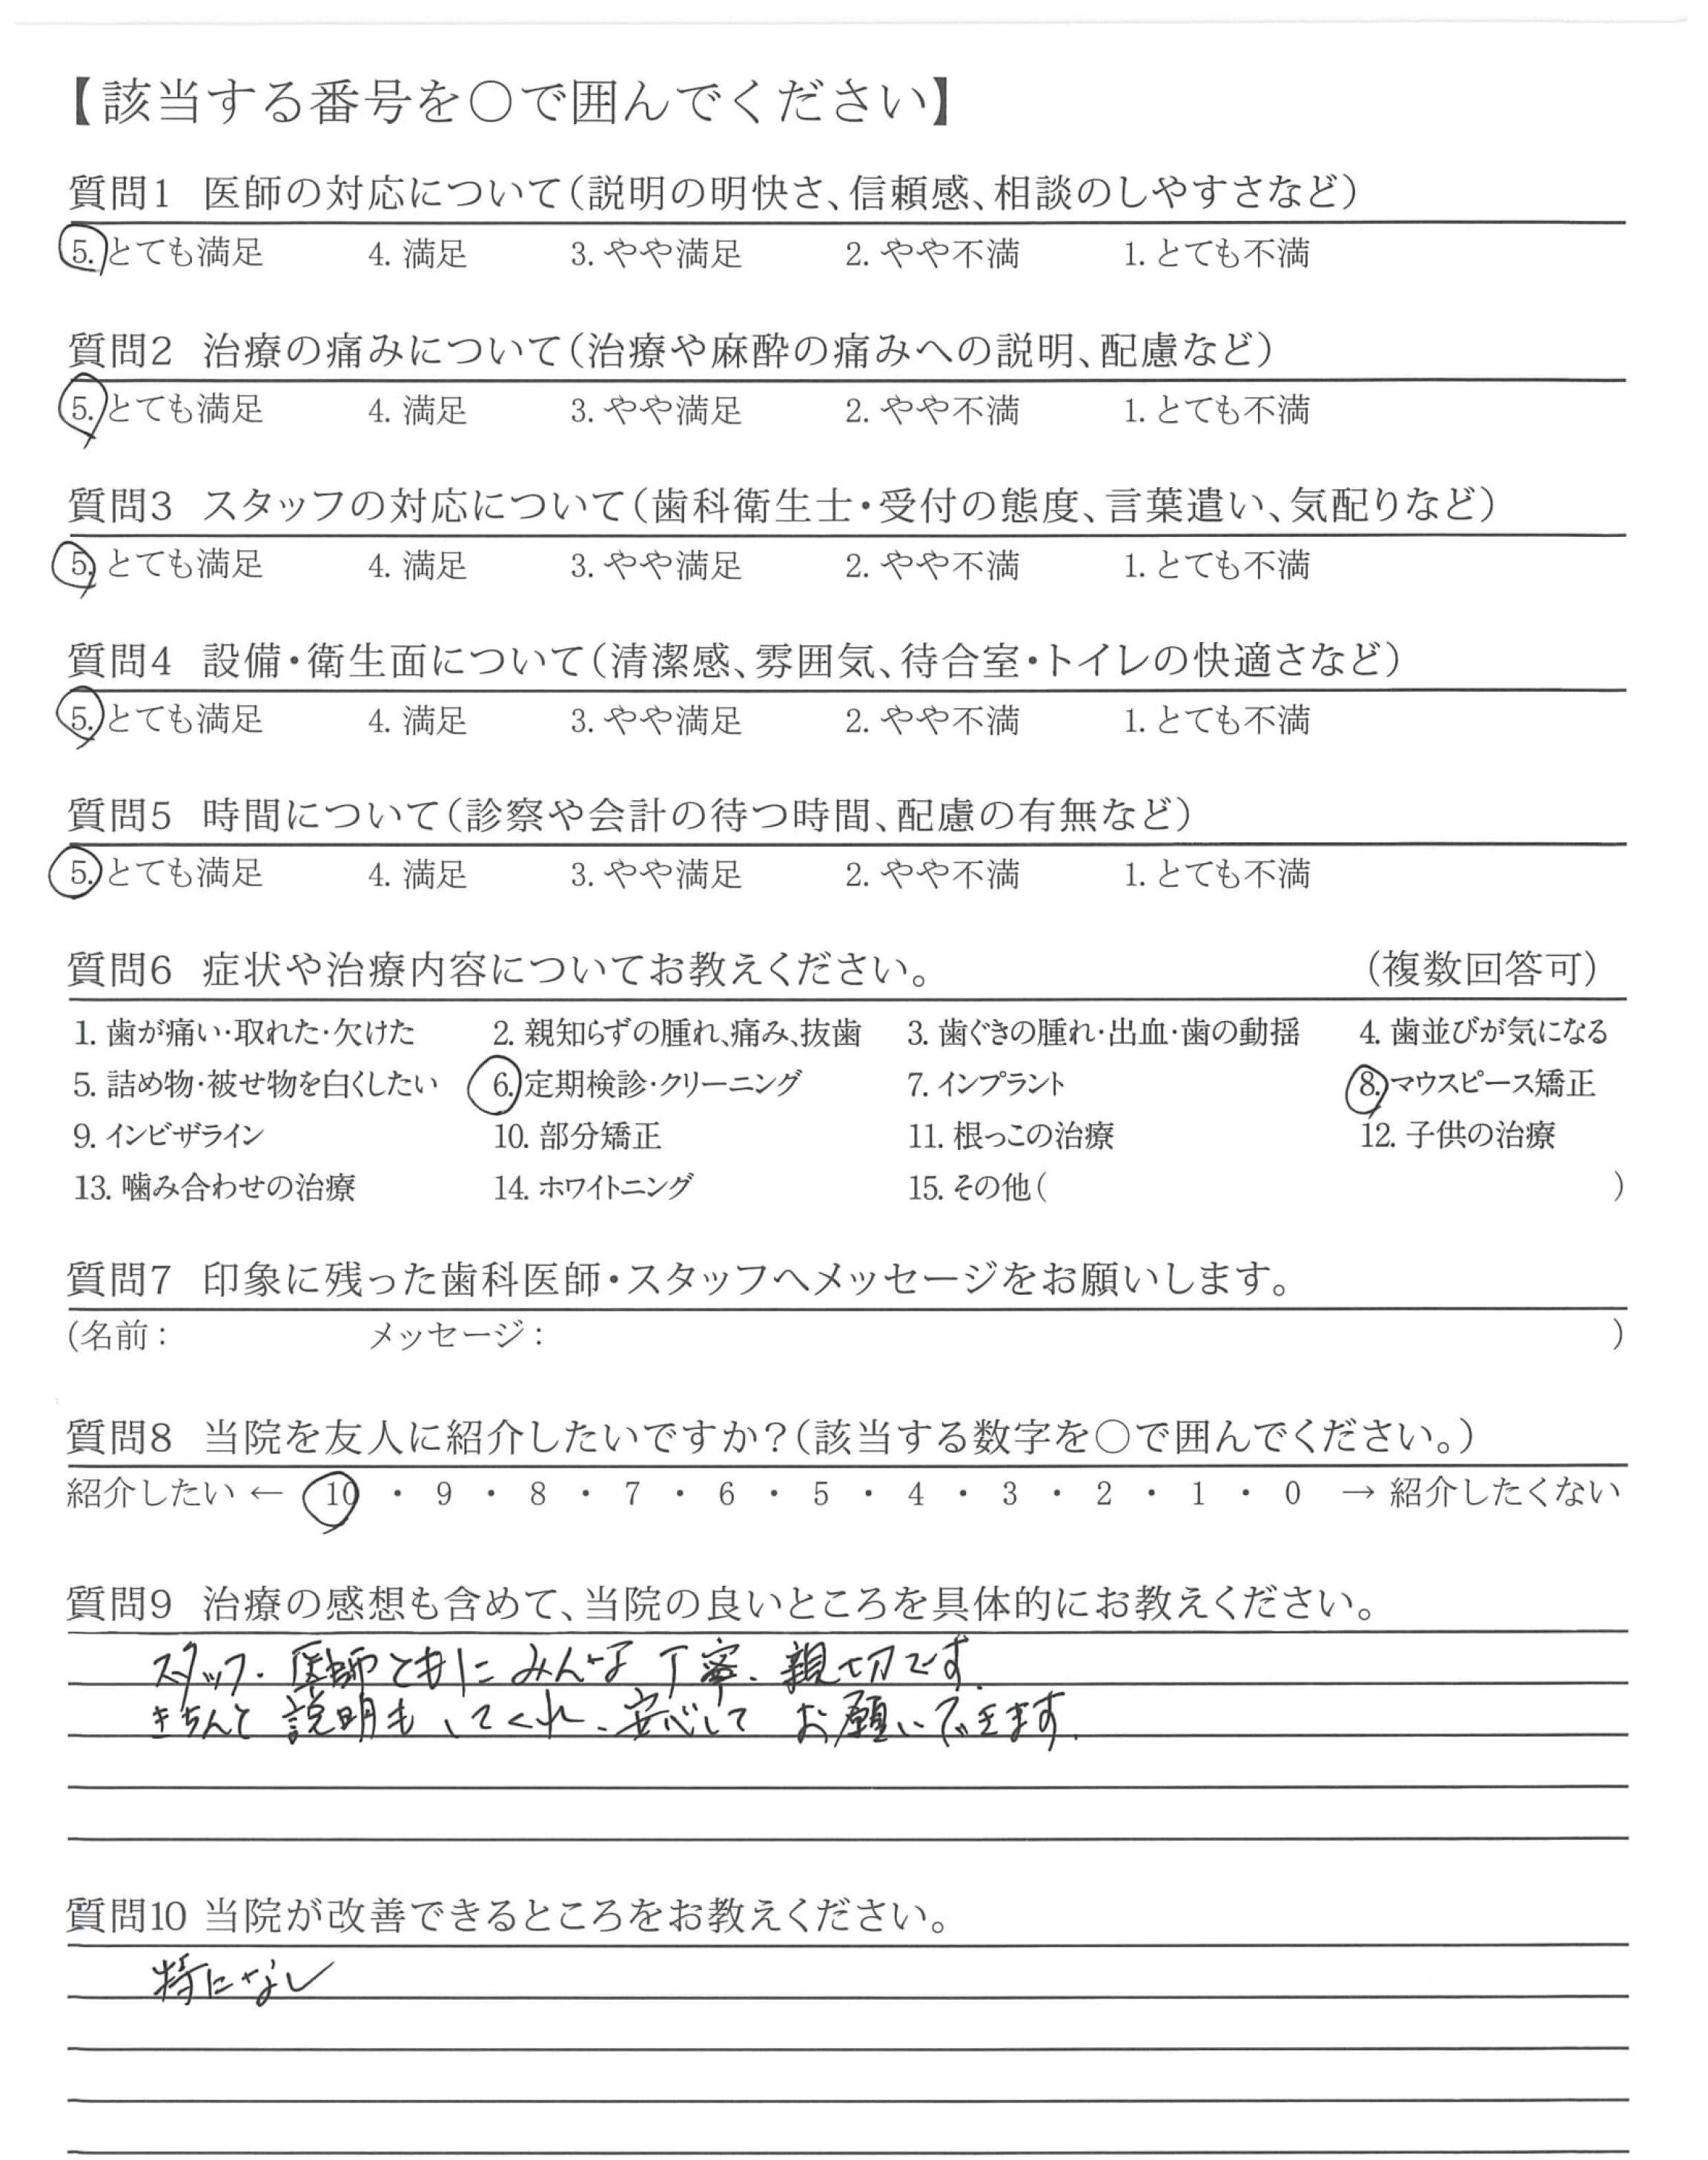 【該当する番号を○で囲んでください】
質問1 医師の対応について（説明の明快さ、信頼感、相談のしやすさなど）
5. とても満足 4. 満足 3. やや満足 2. やや不満 1. とても不満
質問2 治療の痛みについて（治療や麻酔の痛みへの説明、配慮など）
5. とても満足 4. 満足 3. やや満足 2. やや不満 1. とても不満
質問3 スタッフの対応について（歯科衛生士・受付の態度、言葉遣い、気配りなど）
5. とても満足 4. 満足 3. やや満足 2. やや不満 1. とても不満
質問4 設備・衛生面について（清潔感、雰囲気、待合室・トイレの快適さなど）
5. とても満足 4. 満足 3. やや満足 2. やや不満 1. とても不満
質問5 時間について（診察や会計の待つ時間、配慮の有無など）
5. とても満足 4. 満足 3. やや満足 2. やや不満 1. とても不満
質問6 症状や治療内容についてお教えください。 （複数回答可）
1. 歯が痛い・取れた・欠けた 2. 親知らずの腫れ、痛み、抜歯 3. 歯ぐきの腫れ・出血・歯の動揺 4. 歯並びが気になる
5. 詰め物・被せ物を白くしたい 6. 定期検診・クリーニング 7. インプラント 8. マウスピース矯正
9. インビザライン 10. 部分矯正 11. 根っこの治療 12. 子供の治療
13. 噛み合わせの治療 14. ホワイトニング 15. その他（ ）
質問7 印象に残った歯科医師・スタッフへメッセージをお願いします。
（名前： メッセージ： ）
質問8 当院を友人に紹介したいですか？（該当する数字を○で囲んでください。）
紹介したい ← 10 ・ 9 ・ 8 ・ 7 ・ 6 ・ 5 ・ 4 ・ 3 ・ 2 ・ 1 ・ 0 → 紹介したくない
質問9 治療の感想も含めて、当院の良いところを具体的にお教えください。
スタッフ、医師ともにみんな丁寧、親切です。
きちんと説明もしてくれ、安心してお願いできます。
質問10 当院が改善できるところをお教えください。
特になし